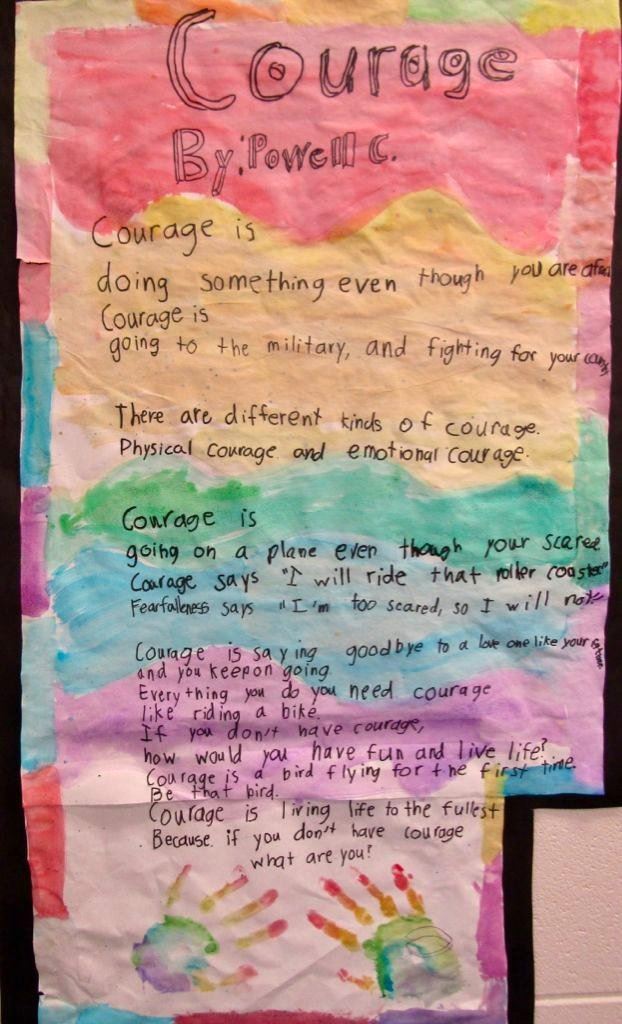 Courage
By: Powell C.
Courage is
doing something even though you are
Courage is
going to the military, and fighting for your
There are different kinds of courage.
Physical courage and emotional courage.
Courage is
going on a plane even though your scared
Courage says "I will ride that roller coaster"
Fearfallness says "I'm too scared, so I will not"
Courage is saying goodbye to a love one like your
and you keep on going.
Everything you do you need courage
like riding a bike.
If you don't have courage,
how would you have fun and live life?
Courage is a bird flying for the first time.
Be that bird.
Courage is living life to the fullest
Because if you don't have courage
what are you?